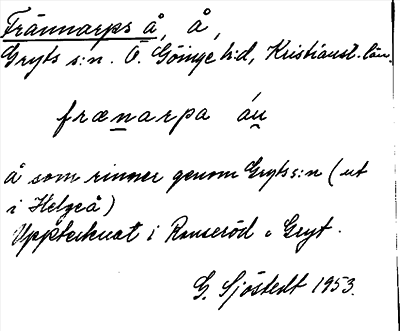 Frännarps å, å,
Gryts s:n. Ö. Göinge h:d, Kristianst. län.
frænarpa áu
å som rinner genom Gryts s:n (ut
i Helgeå)
Upptecknat i Ranseröd i Gryt.
G. Sjöstedt 1953.